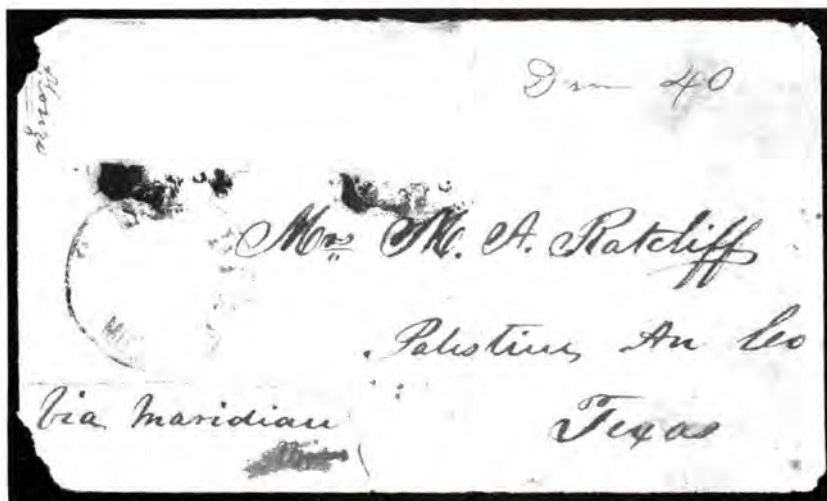 Due 40
Mrs M. A. Ratcliff
Palestine, An Co
Texas
Via Maridian